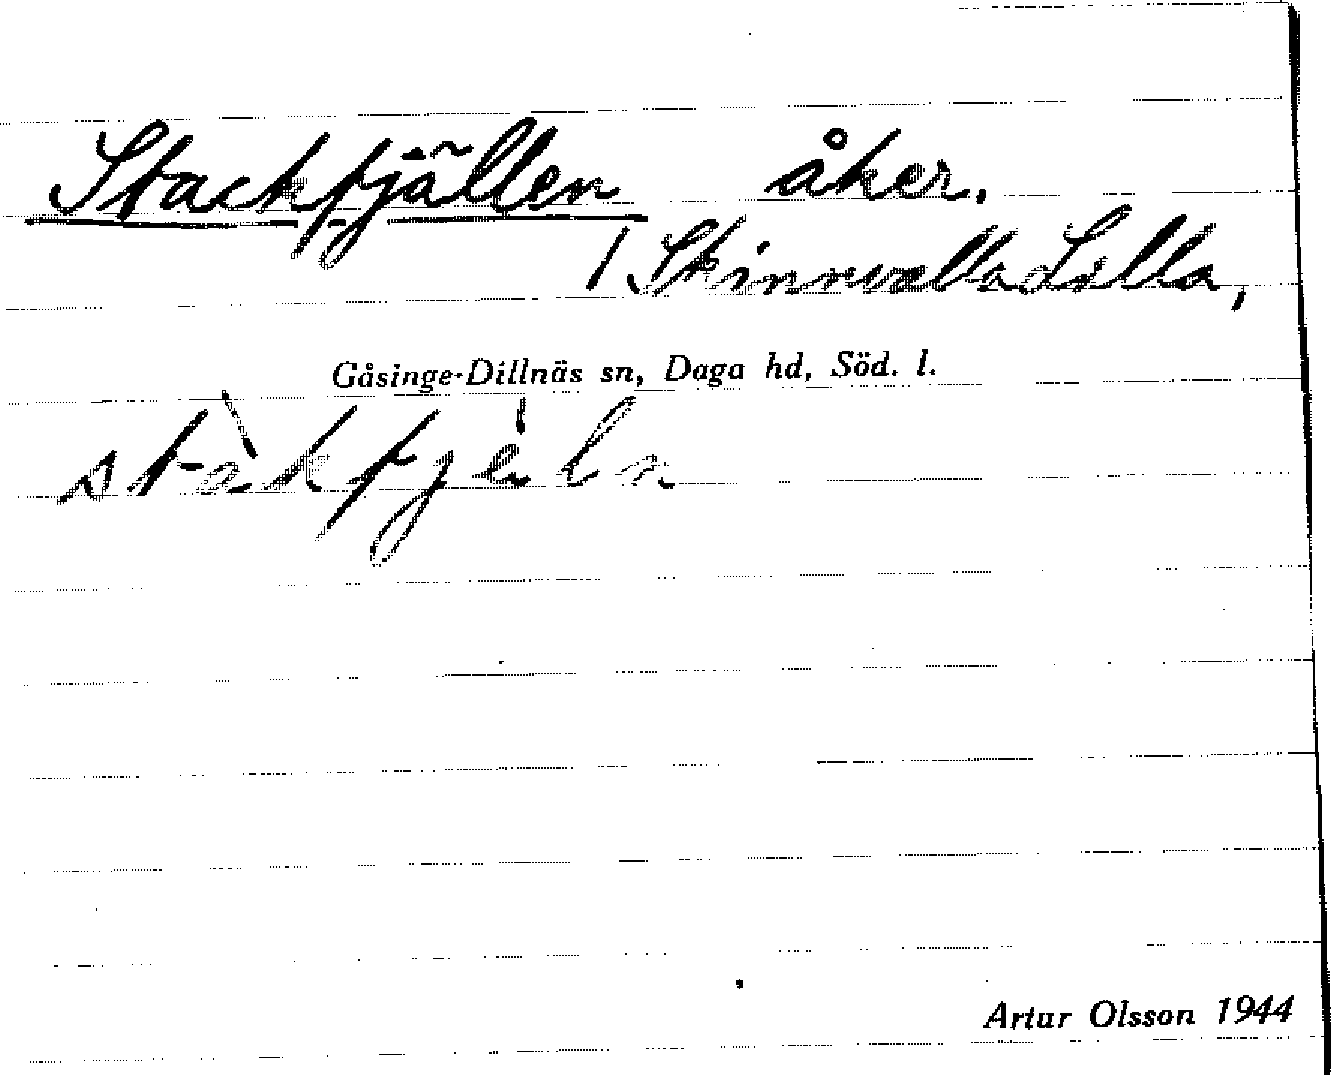 Stackfjällen åker.
/ Skinnvalla Lilla,
Gåsinge-Dillnäs sn, Daga hd, Söd. l.
Artur Olsson 1944